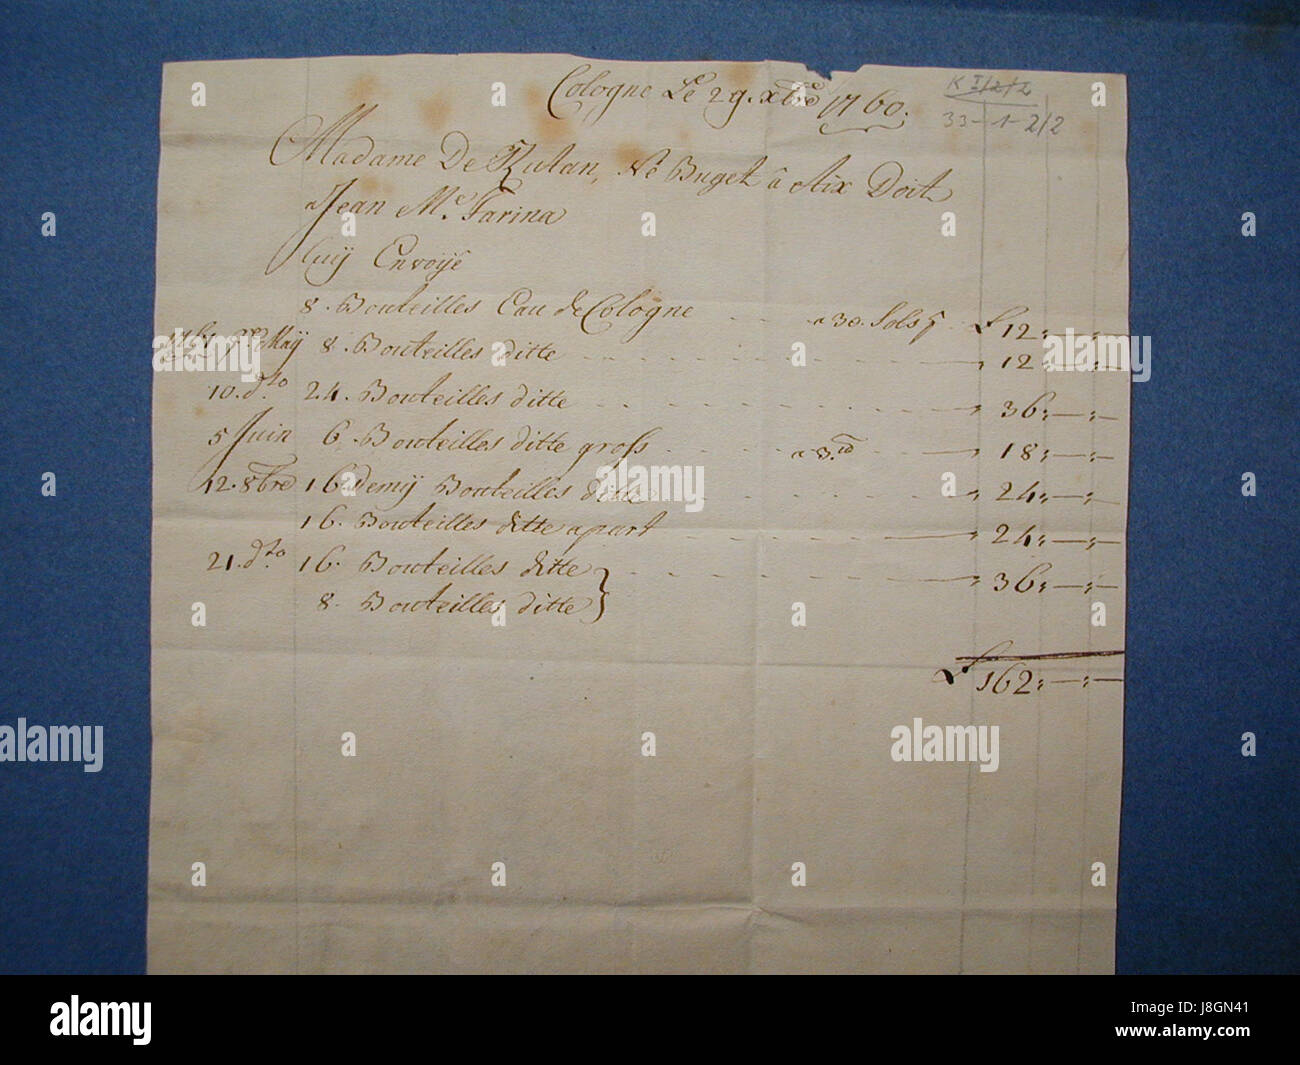 Cologne Le 29. Xbre 1760.
K I/2/2
33-1-2/2
Madame De Rutan, Né Buget â Aix Doit
Jean Me. Farina
Luij Envoÿé
8. Bouteilles Eau de Cologne a 30. Sols £ 12:—:—
May 8. Bouteilles ditte 12:—:—
10. dto. 24. Bouteilles ditte 36:—:—
5 Juin 6. Bouteilles ditte gross a 3. 18:—:—
12. 8bre 16 demÿ Bouteilles ditte 24:—:—
16. Bouteilles ditte apart 24:—:—
21. dto. 16. Bouteilles ditte 36:—:—
8. Bouteilles ditte
£ 162:—:—
alamy
alamy
Image ID: J8GN41
www.alamy.com